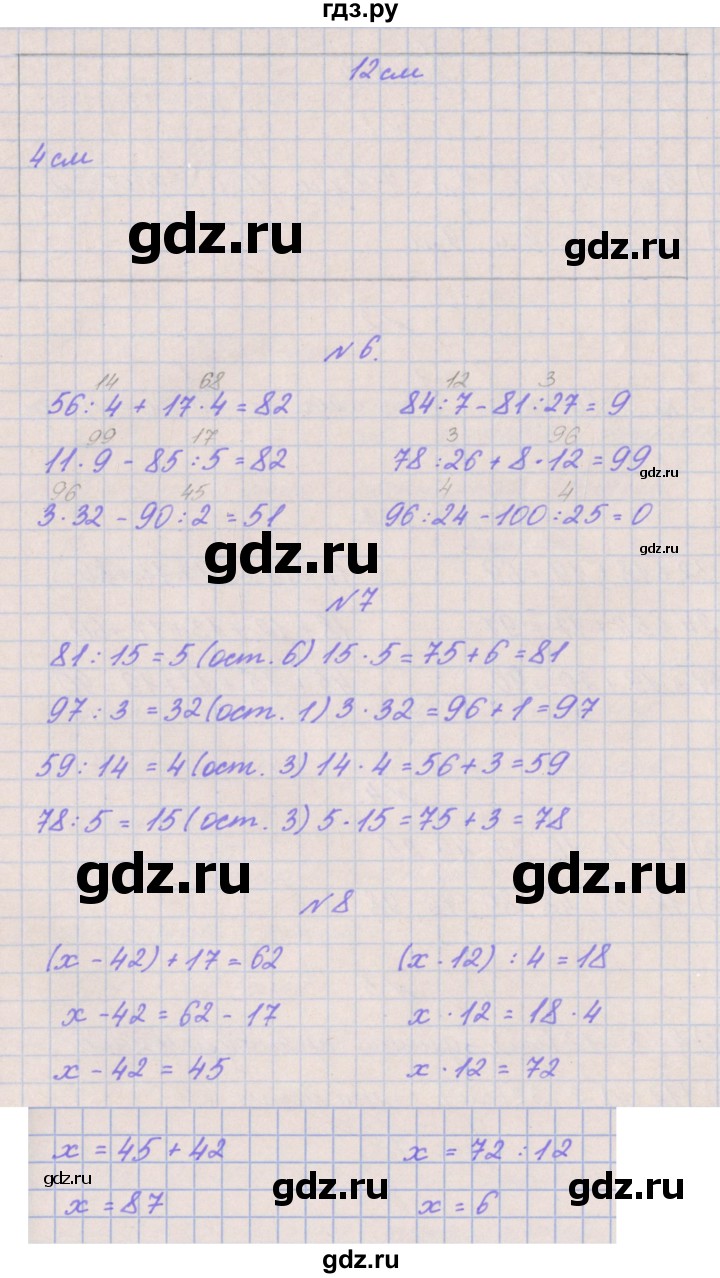 гдз.ру
12 см
4 см
gdz.ru
gdz.ru
№ 6.
14 68 12 3
56 : 4 + 17 · 4 = 82 84 : 7 - 81 : 27 = 9
99 17 3 96
11 · 9 - 85 : 5 = 82 78 : 26 + 8 · 12 = 99
gdz.ru
96 45 4 4
3 · 32 - 90 : 2 = 51 96 : 24 - 100 : 25 = 0
gdz.ru gdz.ru
№ 7
81 : 15 = 5 (ост. 6) 15 · 5 = 75 + 6 = 81
97 : 3 = 32 (ост. 1) 3 · 32 = 96 + 1 = 97
59 : 14 = 4 (ост. 3) 14 · 4 = 56 + 3 = 59
78 : 5 = 15 (ост. 3) 5 · 15 = 75 + 3 = 78
gdz.ru gdz.ru
№ 8
(x - 42) + 17 = 62 (x · 12) : 4 = 18
x - 42 = 62 - 17 x · 12 = 18 · 4
x - 42 = 45 x · 12 = 72
x = 45 + 42 x = 72 : 12
gdz.ru gdz.ru gdz.ru
x = 87 x = 6
gdz.ru